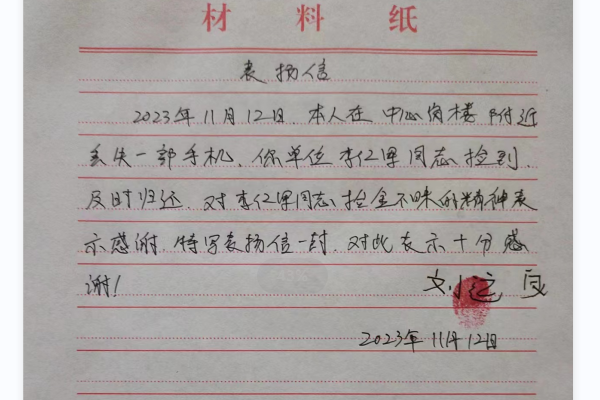 材料纸
表扬信
2023年11月12日.本人在 中心岗楼 附近
丢失一部手机、你单位 李仁军同志 捡到.
及时归还.对李仁军同志拾金不昧的精神表
示感谢.特写表扬信一封.对此表示十分感
谢!
刘运良
2023年11月12日